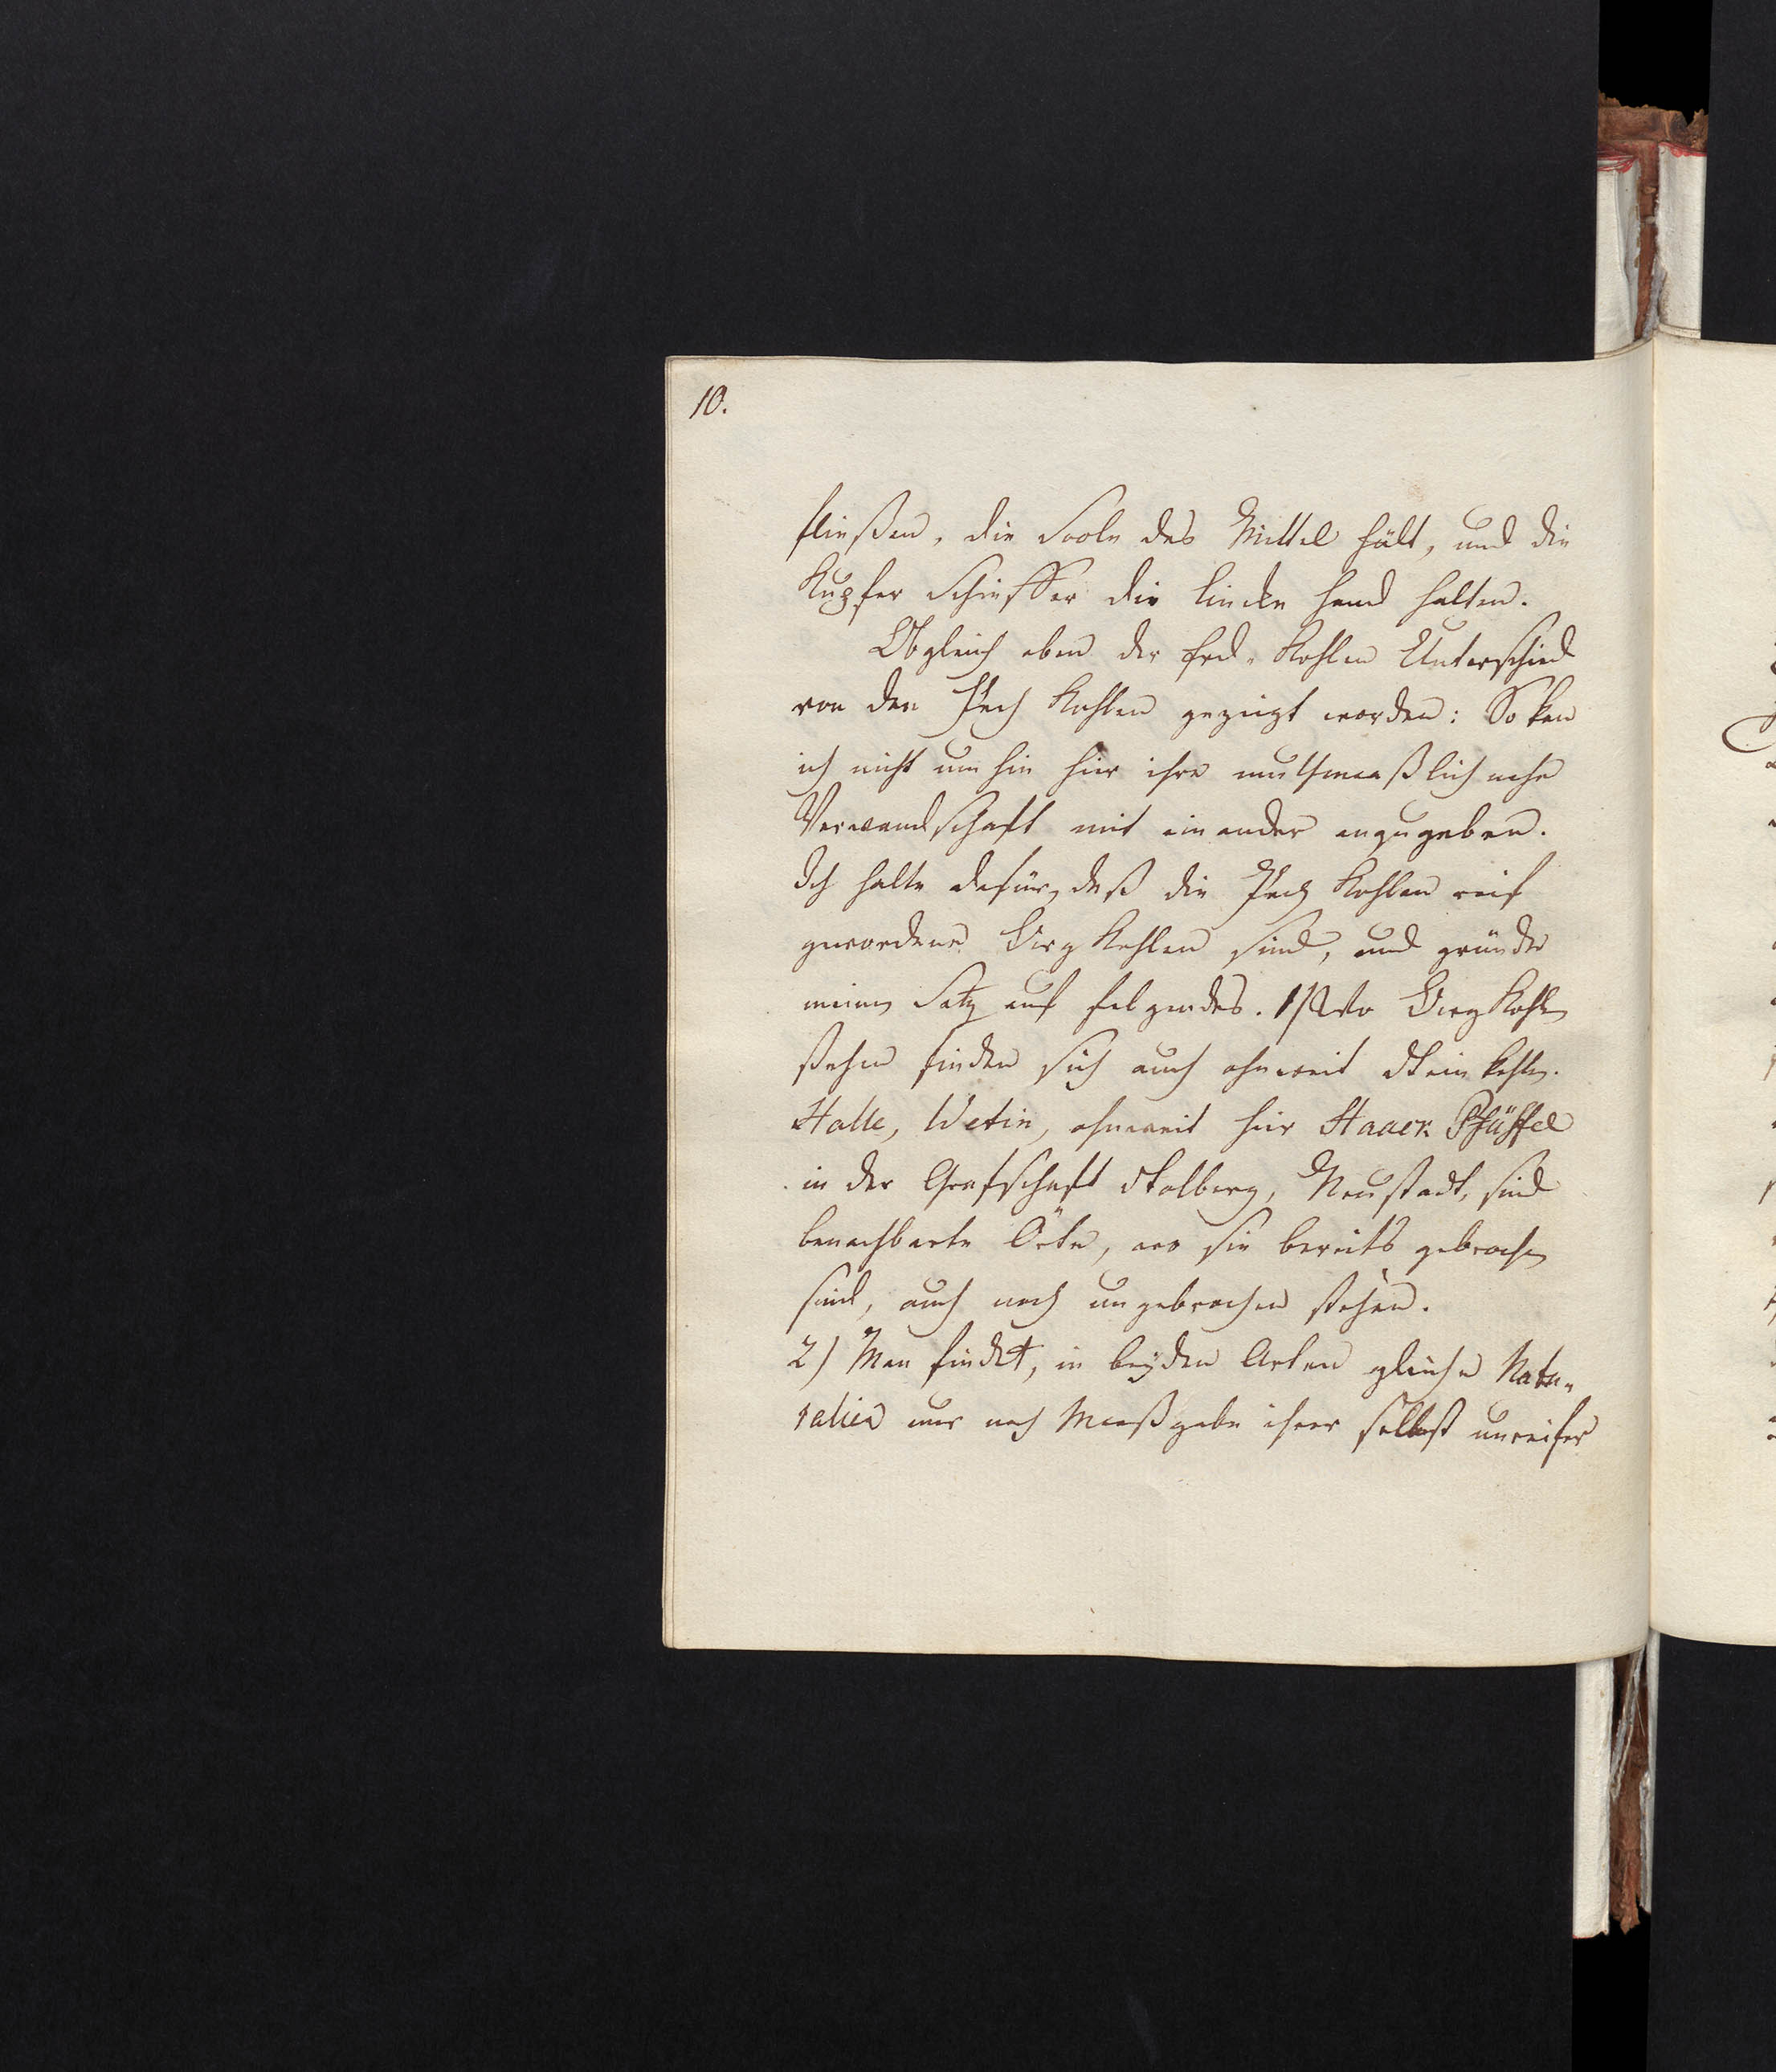 10.
fließen, die Soole das Mittel hält, und die
Kupfer Schieffer die lincke hand halten.
Obgleich oben der Erd-Kohlen Unterschied
von den Pech Kohlen gezeigt worden: So kan
ich nicht umhin hier ihre muthmaßlich nahe
Verwandschaft mit einander anzugeben.
Ich halte dafür, daß die Pech Kohlen reif
gewordene Kohlen sind, und gründe
meinen Satz auf folgendes. 1) Wo Kohlen
stehen finden sich auch ohnweit Steinkohlen.
Halle, Wetin, ohnweit hier Haack Pfüffel
in der Grafschaft Stolberg, Neustadt, sind
benachbarte Örte, wo sie bereits gebrochen
sind, auch noch ungebrochen stehen.
2) Man findet, in beyden Arten gleiche Natu-
ralien nur nach Maaßgabe ihrer selbst unreifer